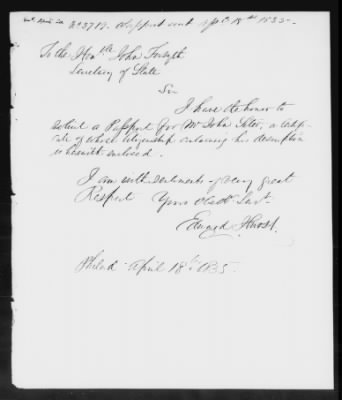 No 3717. Passport sent Apl. 18th 1835.
To the Honble John Forsyth
Secretary of State
Sir
I have the honor to
solicit a Passport for Mr John, a certifi-
cate of whose citizenship enclosing his description
is herewith enclosed.
I am with sentiments of very great
Respect Your Obdt Servt.
Edward Hurst.
Philad. April 18th 1835.